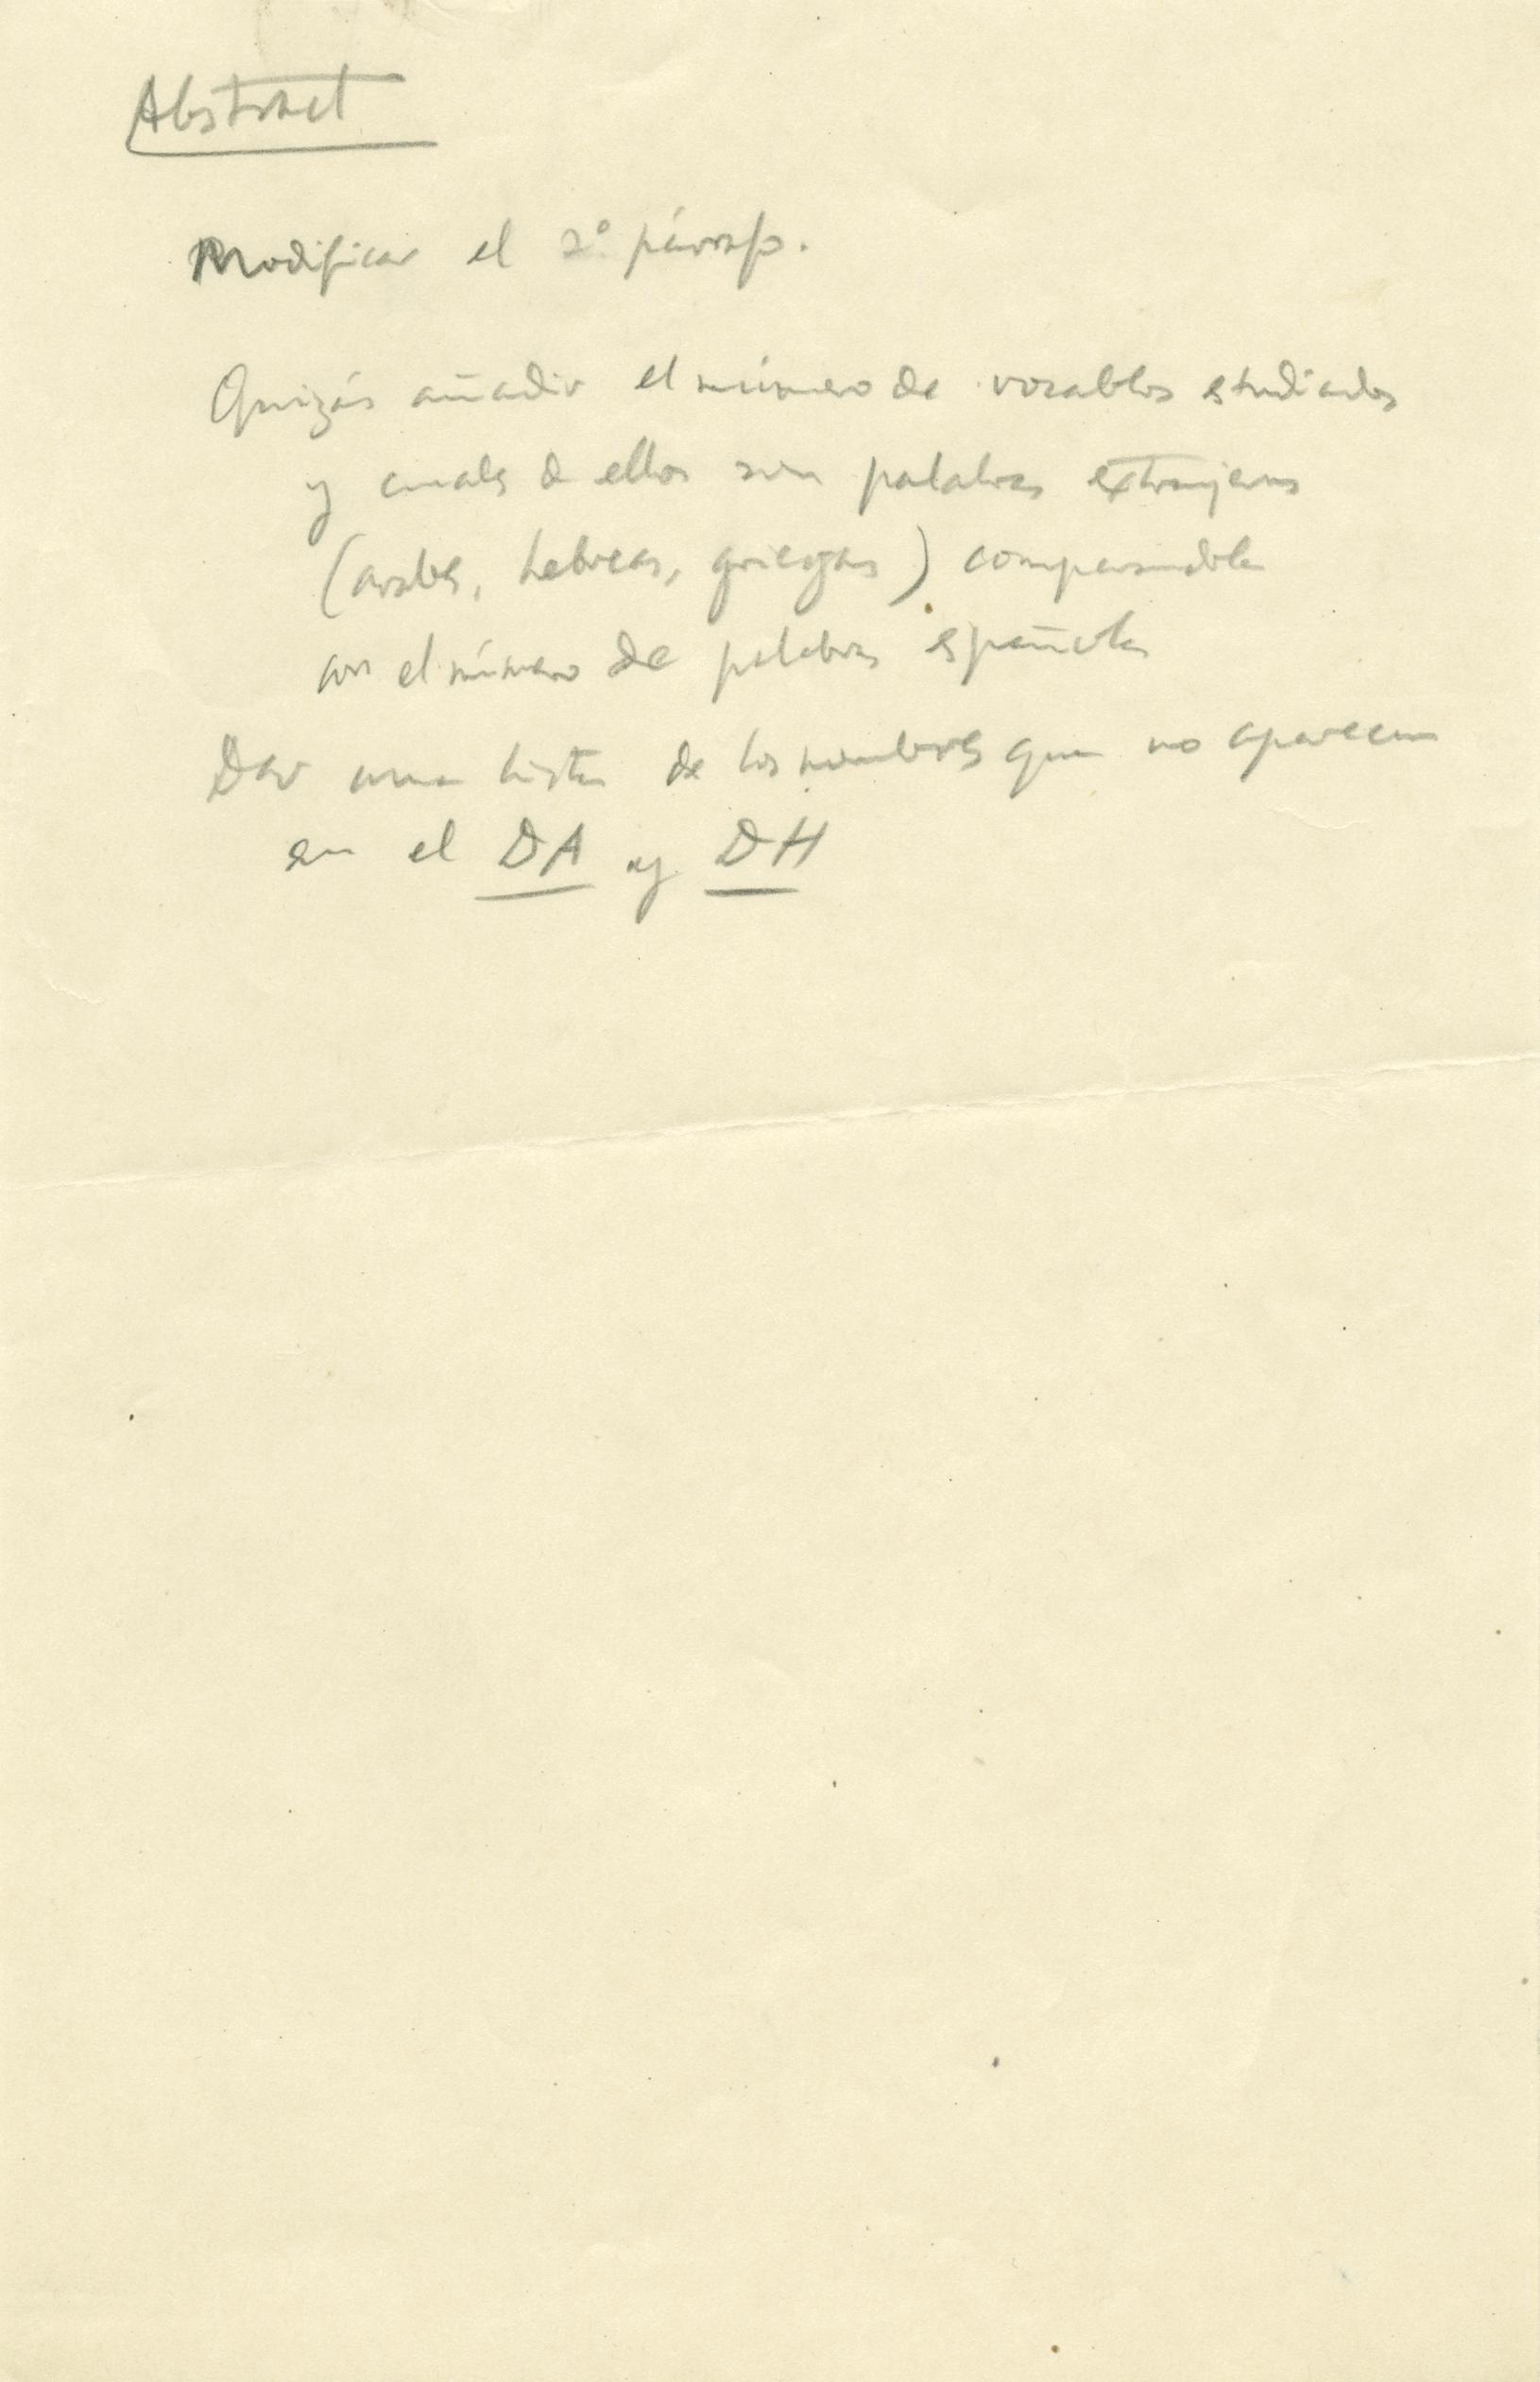 Abstract
Modificar el 2º párrafo.
Quizás añadir el número de vocablos estudiados
y cuales de ellos son palabras extranjeras
(arabes, hebreas, griegas) comparandola
con el número de palabras españolas
Dar una lista de los nombres que no aparecen
en el DA y DH